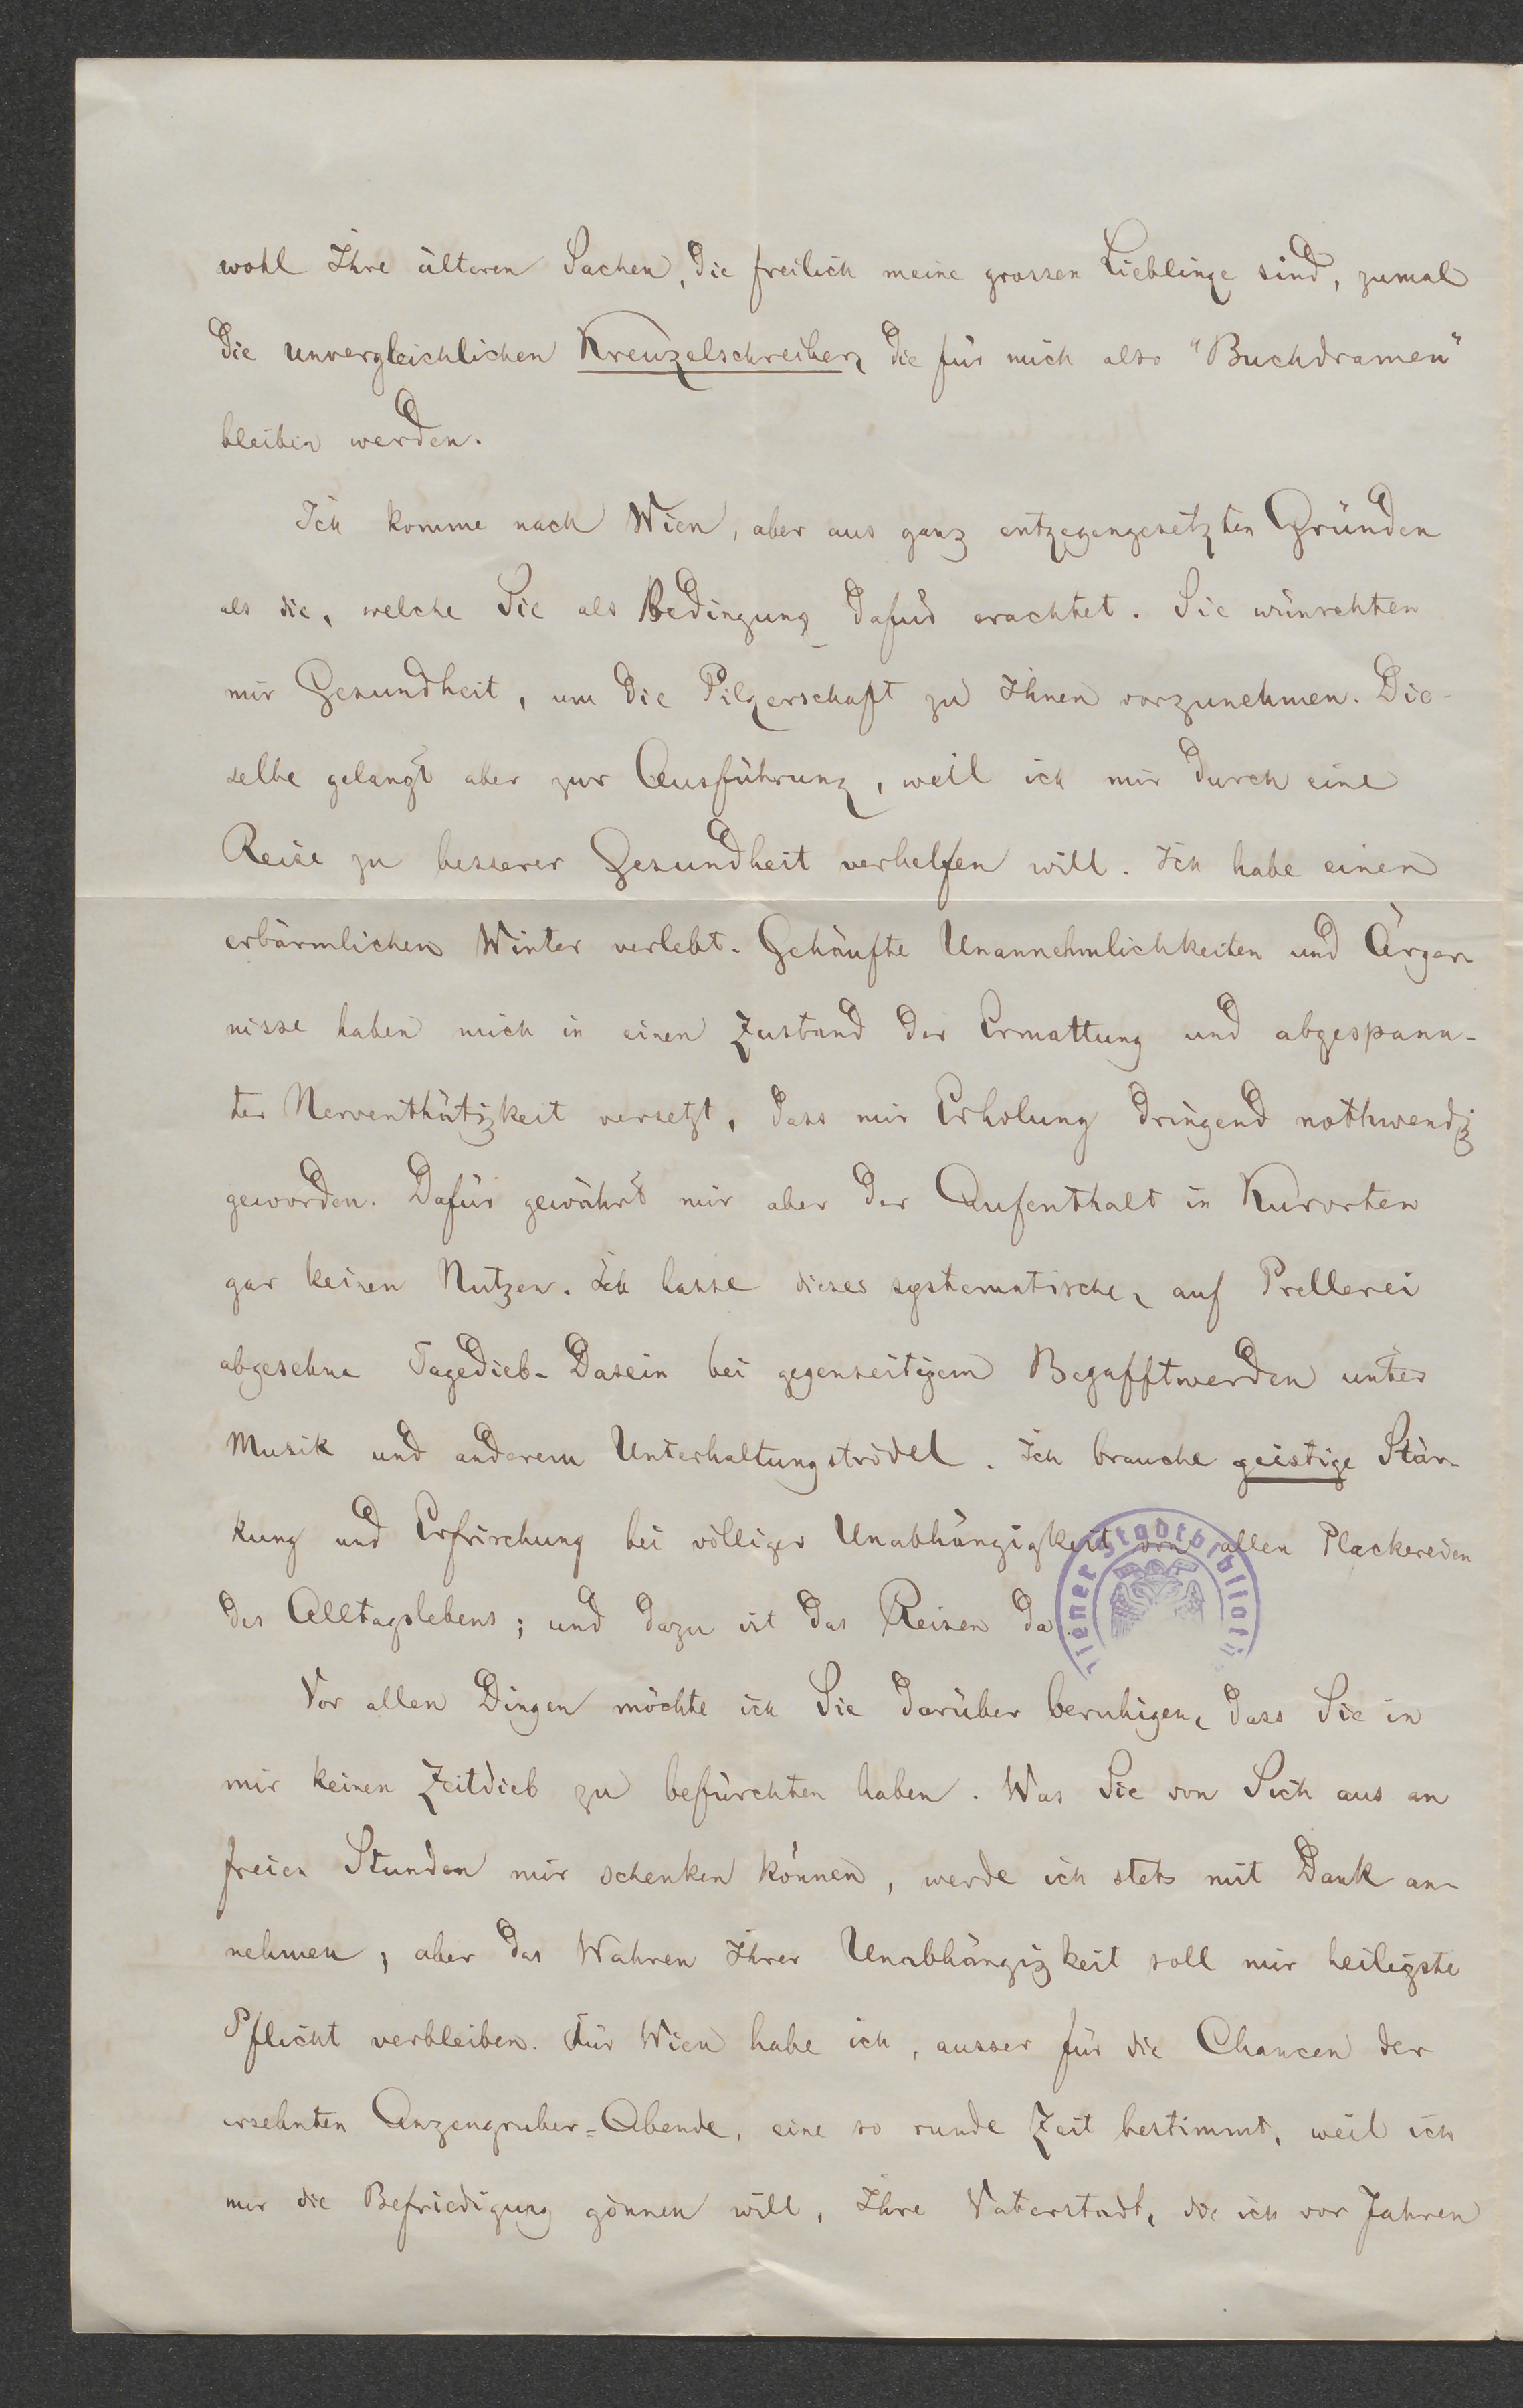 wohl Ihre älteren Sachen, die freilich meine grossen Lieblinge sind, zumal
die unvergleichlichen Kreuzelschreiber, die für mich also "Buchdramen"
bleiben werden.
Ich komme nach Wien, aber aus ganz entgegengesetzten Gründen
als die, welche Sie als Bedingung dafür erachtet. Sie wünschten
mir Gesundheit, um die Pilgerschaft zu Ihnen vorzunehmen. Die-
selbe gelangt aber zur Ausführung, weil ich mir durch eine
Reise zu besserer Gesundheit verhelfen will. Ich habe einen
erbärmlichen Winter verlebt. Gehäufte Unannehmlichkeiten und Ärger-
nisse haben mich in einen Zustand der Ermattung und abgespann-
ter Nerventhätigkeit versetzt, dass mir Erholung dringend nothwendig
geworden. Dafür gewährt mir aber der Aufenthalt in Kurorten
gar keinen Nutzen. Ich hasse dieses systematische, auf Prellerei
abgesehne Tagedieb-Dasein bei gegenseitigem Begafftwerden unter
Musik und anderem Unterhaltungströdel. Ich brauche geistige Stär-
kung und Erfrischung bei völliger Unabhängigkeit von allen Plackereien
des Alltagslebens; und dazu ist das Reisen da.
Wiener Stadtbibliothek
Vor allen Dingen möchte ich Sie darüber beruhigen, dass Sie in
mir keinen Zeitdieb zu befürchten haben. Was Sie von Sich aus an
freien Stunden mir schenken können, werde ich stets mit Dank an-
nehmen; aber das Wahren Ihrer Unabhängigkeit soll mir heiligste
Pflicht verbleiben. Für Wien habe ich, ausser für die Chancen der
ersehnten Anzengruber-Abende, eine so runde Zeit bestimmt, weil ich
mir die Befriedigung gönnen will, Ihre Vaterstadt, die ich vor Jahren